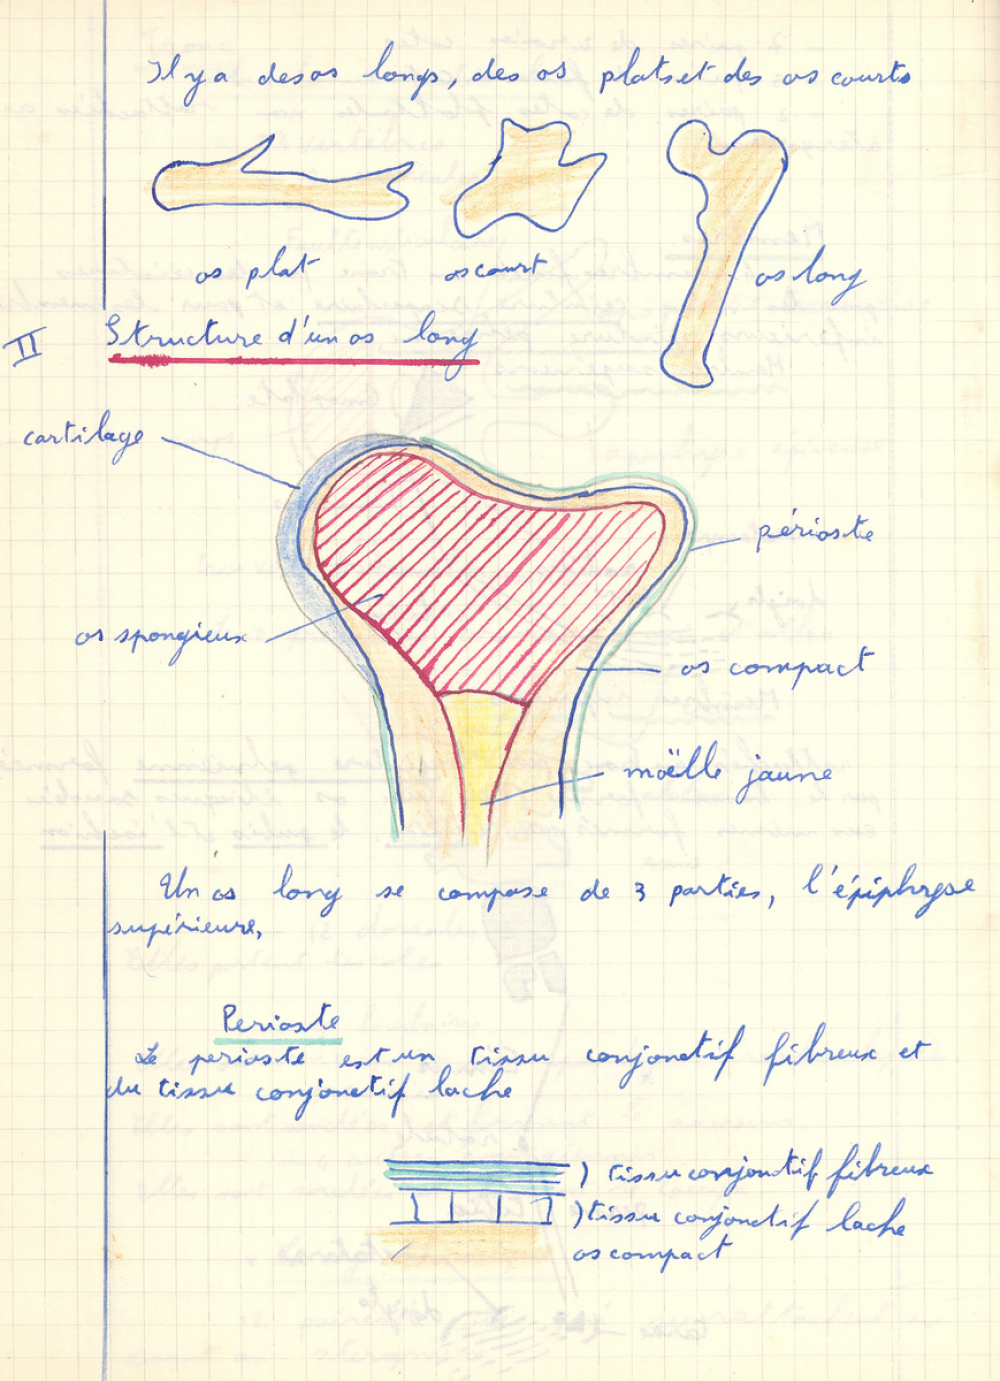 Il y a des os longs, des os plats et des os courts
os plat
os court
os long
II Structure d'un os long
cartilage
périoste
os spongieux
os compact
moëlle jaune
Un os long se compose de 3 parties, l'épiphyse
supérieure,
Perioste
Le perioste est un tissu conjonctif fibreux et
du tissu conjonctif lache
) tissu conjonctif fibreux
) tissu conjonctif lache
os compact